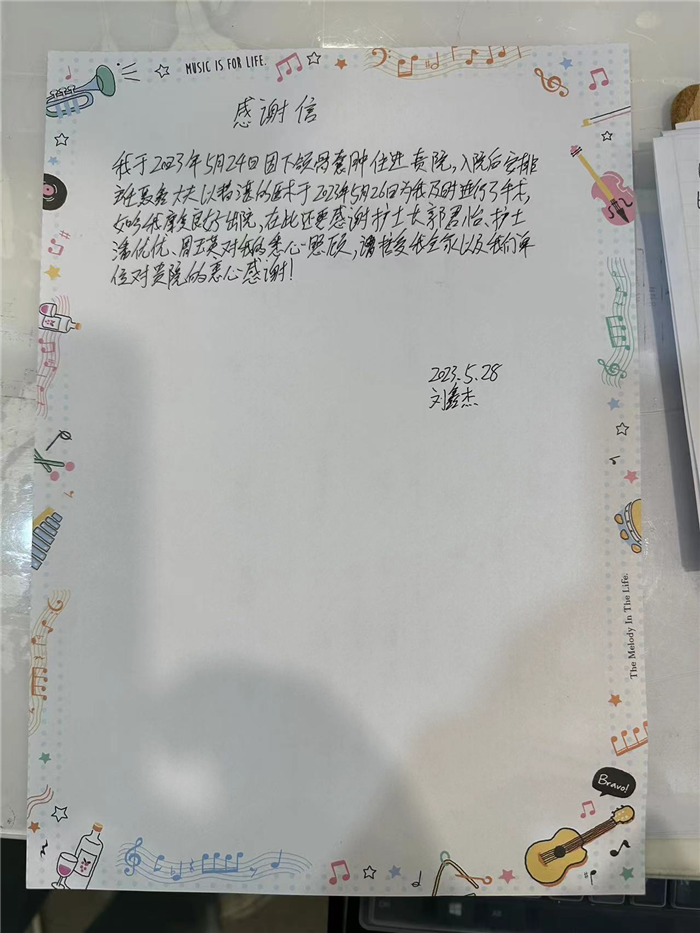 MUSIC IS FOR LIFE.
感谢信
我于2023年5月24日因下颌骨囊肿住进贵院,入院后安排
大夫以精湛的医术于2023年5月26日为我及时进行了手术,
如今我康复良好出院,在此还要感谢护士长郭君怡、护士
潘优优、周玉英对我的悉心照顾,请接受我全家以及我们单
位对贵院的悉心感谢!
2023.5.28
刘鑫杰
The Melody In The Life.
Bravo!